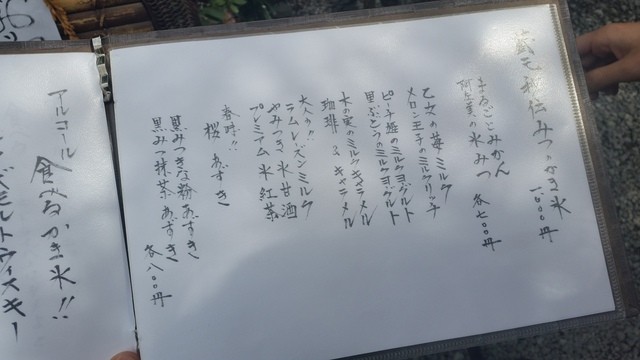 蔵元秘伝みつかき氷
一、〇〇〇円
まるごとみかん
氷みつ
各七〇〇円
乙女の苺ミルク
メロン王子のミルクリッチ
ピーチ姫のミルクヨーグルト
黒ぶどうのミルクヨーグルト
木の実のミルクキャラメル
珈琲 & キャラメル
大人の!!
ラムレーズンミルク
やみつき氷甘酒
プレミアム氷紅茶
春到!!
桜 あずき
黒みつきな粉あずき
黒みつ抹茶あずき
各八〇〇円
アルコール
食べるかき氷!!
モルトウィスキー